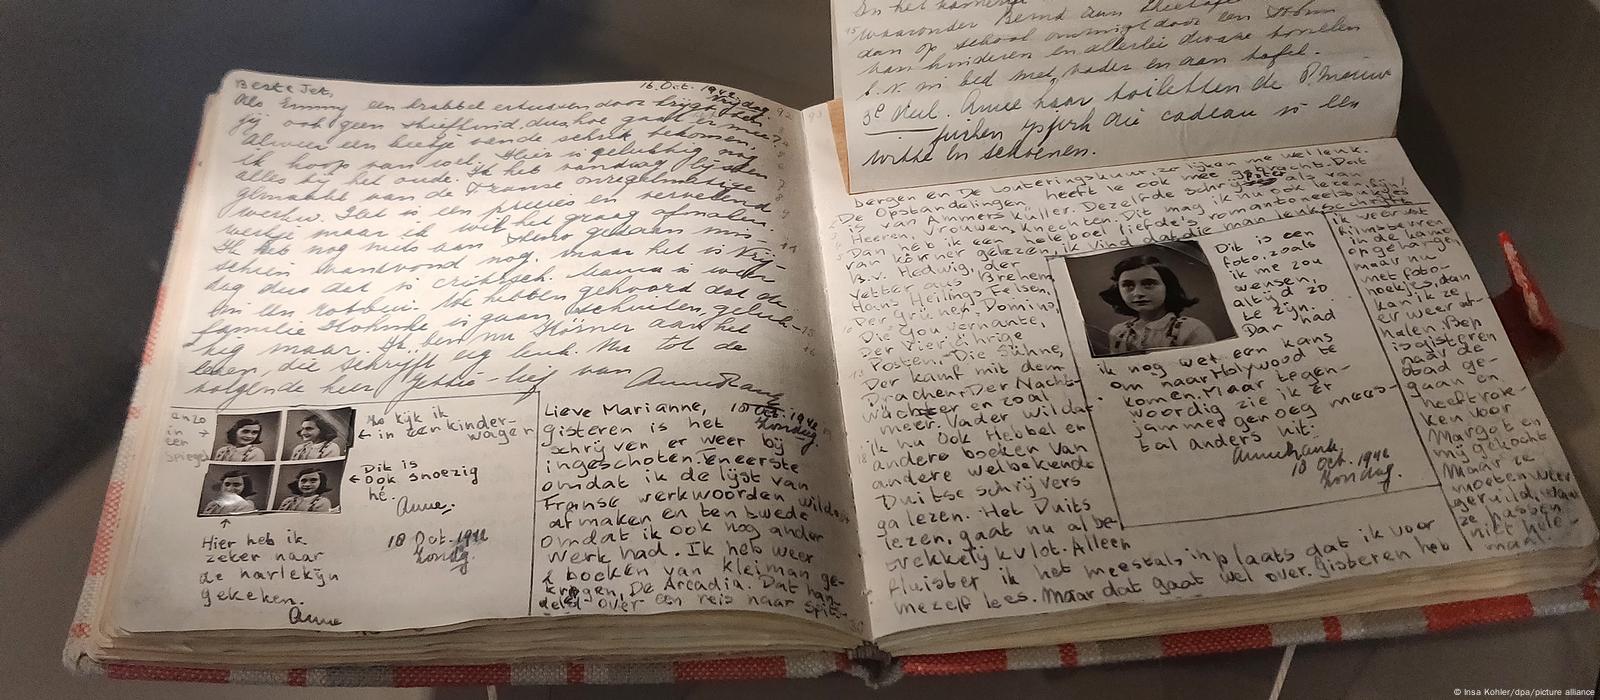 waaronder Bernd aan
dan op school omringt door een
van kinderen en allerlei dwaze
b.v. in bed met vader en aan tafel.
3e Aul. Anne haar toiletten de
die cadeau is een
witte en schoenen.
Beste Jet,
16. Oct. 1942
Vrijdag.
Als Emmy een krabbel ertussen door krijgt ben
jij ook geen stiefkind, dus hoe gaat er mee?
Alweer een beetje van de schrik bekomen,
ik hoop van wel. Hier is gelukkig nog
alles bij het oude. Ik heb vandaag lijsten
gemaakt van de Franse onregelmatige
werkw. Het is een precies en vervelend
werkje maar ik wil het graag afmaken.
Ik heb nog niets aan Steno gedaan mis-
schien vanavond nog, maar het is Vrij-
dag dus dat is critisch. Mama is weer
in een rotbui. We hebben gehoord dat de
familie is gaan schuilen, geluk-
kig maar. Ik ben nu Körner aan het
lezen, die schrijft erg leuk. Nu tot de
volgende keer Jettie-lief van
Anne Frank
enzo
in →
een
spiegel
Zo kijk ik
← in een kinder-
wagen
← Dit is
ook snoezig
hè.
Anne.
18 Oct. 1942
Zondg.
↑
Hier heb ik
zeker naar
de harlekijn
gekeken.
Anne
Lieve Marianne,
18 Oct. 1942
Zondag.
gisteren is het
schrijven er weer bij
ingeschoten. Eneerste
omdat ik de lijst van
Franse werkwoorden wilde
afmaken en ten twede
omdat ik ook nog ander
werk had. Ik heb weer
2 boeken van Kleiman ge-
kregen, De Arcadia. Dat han-
deld over een reis naar Spitz-
bergen en De Louteringskuur, zo lijken me wel leuk.
De Opstandelingen heeft ie ook mee gebracht. Dat
is van Ammers Küller. Dezelfde schrijfster als van
Heeren Vrouwen, Knechten. Dit mag ik nu ook lezen fijn!
Dan heb ik een heleboel liefde's romantoneel
van Körner gelezen, ik vind dat die man leuk schrijft
B.v. Hedwig, der
Vetter aus Bremen,
Hans Heilings Felsen,
Der Grüne Domino,
Die Gouvernante,
Der Vierjährige
Posten, Die Sühne,
Der Kamf mit dem
Drachen, Der Nacht-
wachter en zoal
meer. Vader wil dat
ik nu ook Hebbel en
andere boeken van
andere welbekende
Duitse schrijvers
ga lezen. Het Duits
lezen, gaat nu al be-
trekkelijk vlot. Alleen
fluister ik het meestals inplaats dat ik voor
mezelf lees. Maar dat gaat wel over. Gisteren heb
Dit is een
foto, zoals
ik me zou
wensen,
altijd zo
te zijn.
Dan had
ik nog wel een kans
om naar Holywood te
komen. Maar tegen-
woordig zie ik er
jammer genoeg mees-
tal anders uit.
Anne Frank
18 Oct. 1942
Zondag.
ik weer wat
filmsterren
in de kamer
opgehangen
maar nu
met foto-
hoekjes, dan
kan ik ze
er weer af-
halen. Bep
is gisteren
naar de
stad ge-
gaan en
heeft rok-
ken voor
Margot en
mij gekocht
Maar ze
moeten weer
geruild, want
ze passen
niet hele-
maal.
© Insa Kohler/dpa/picture alliance